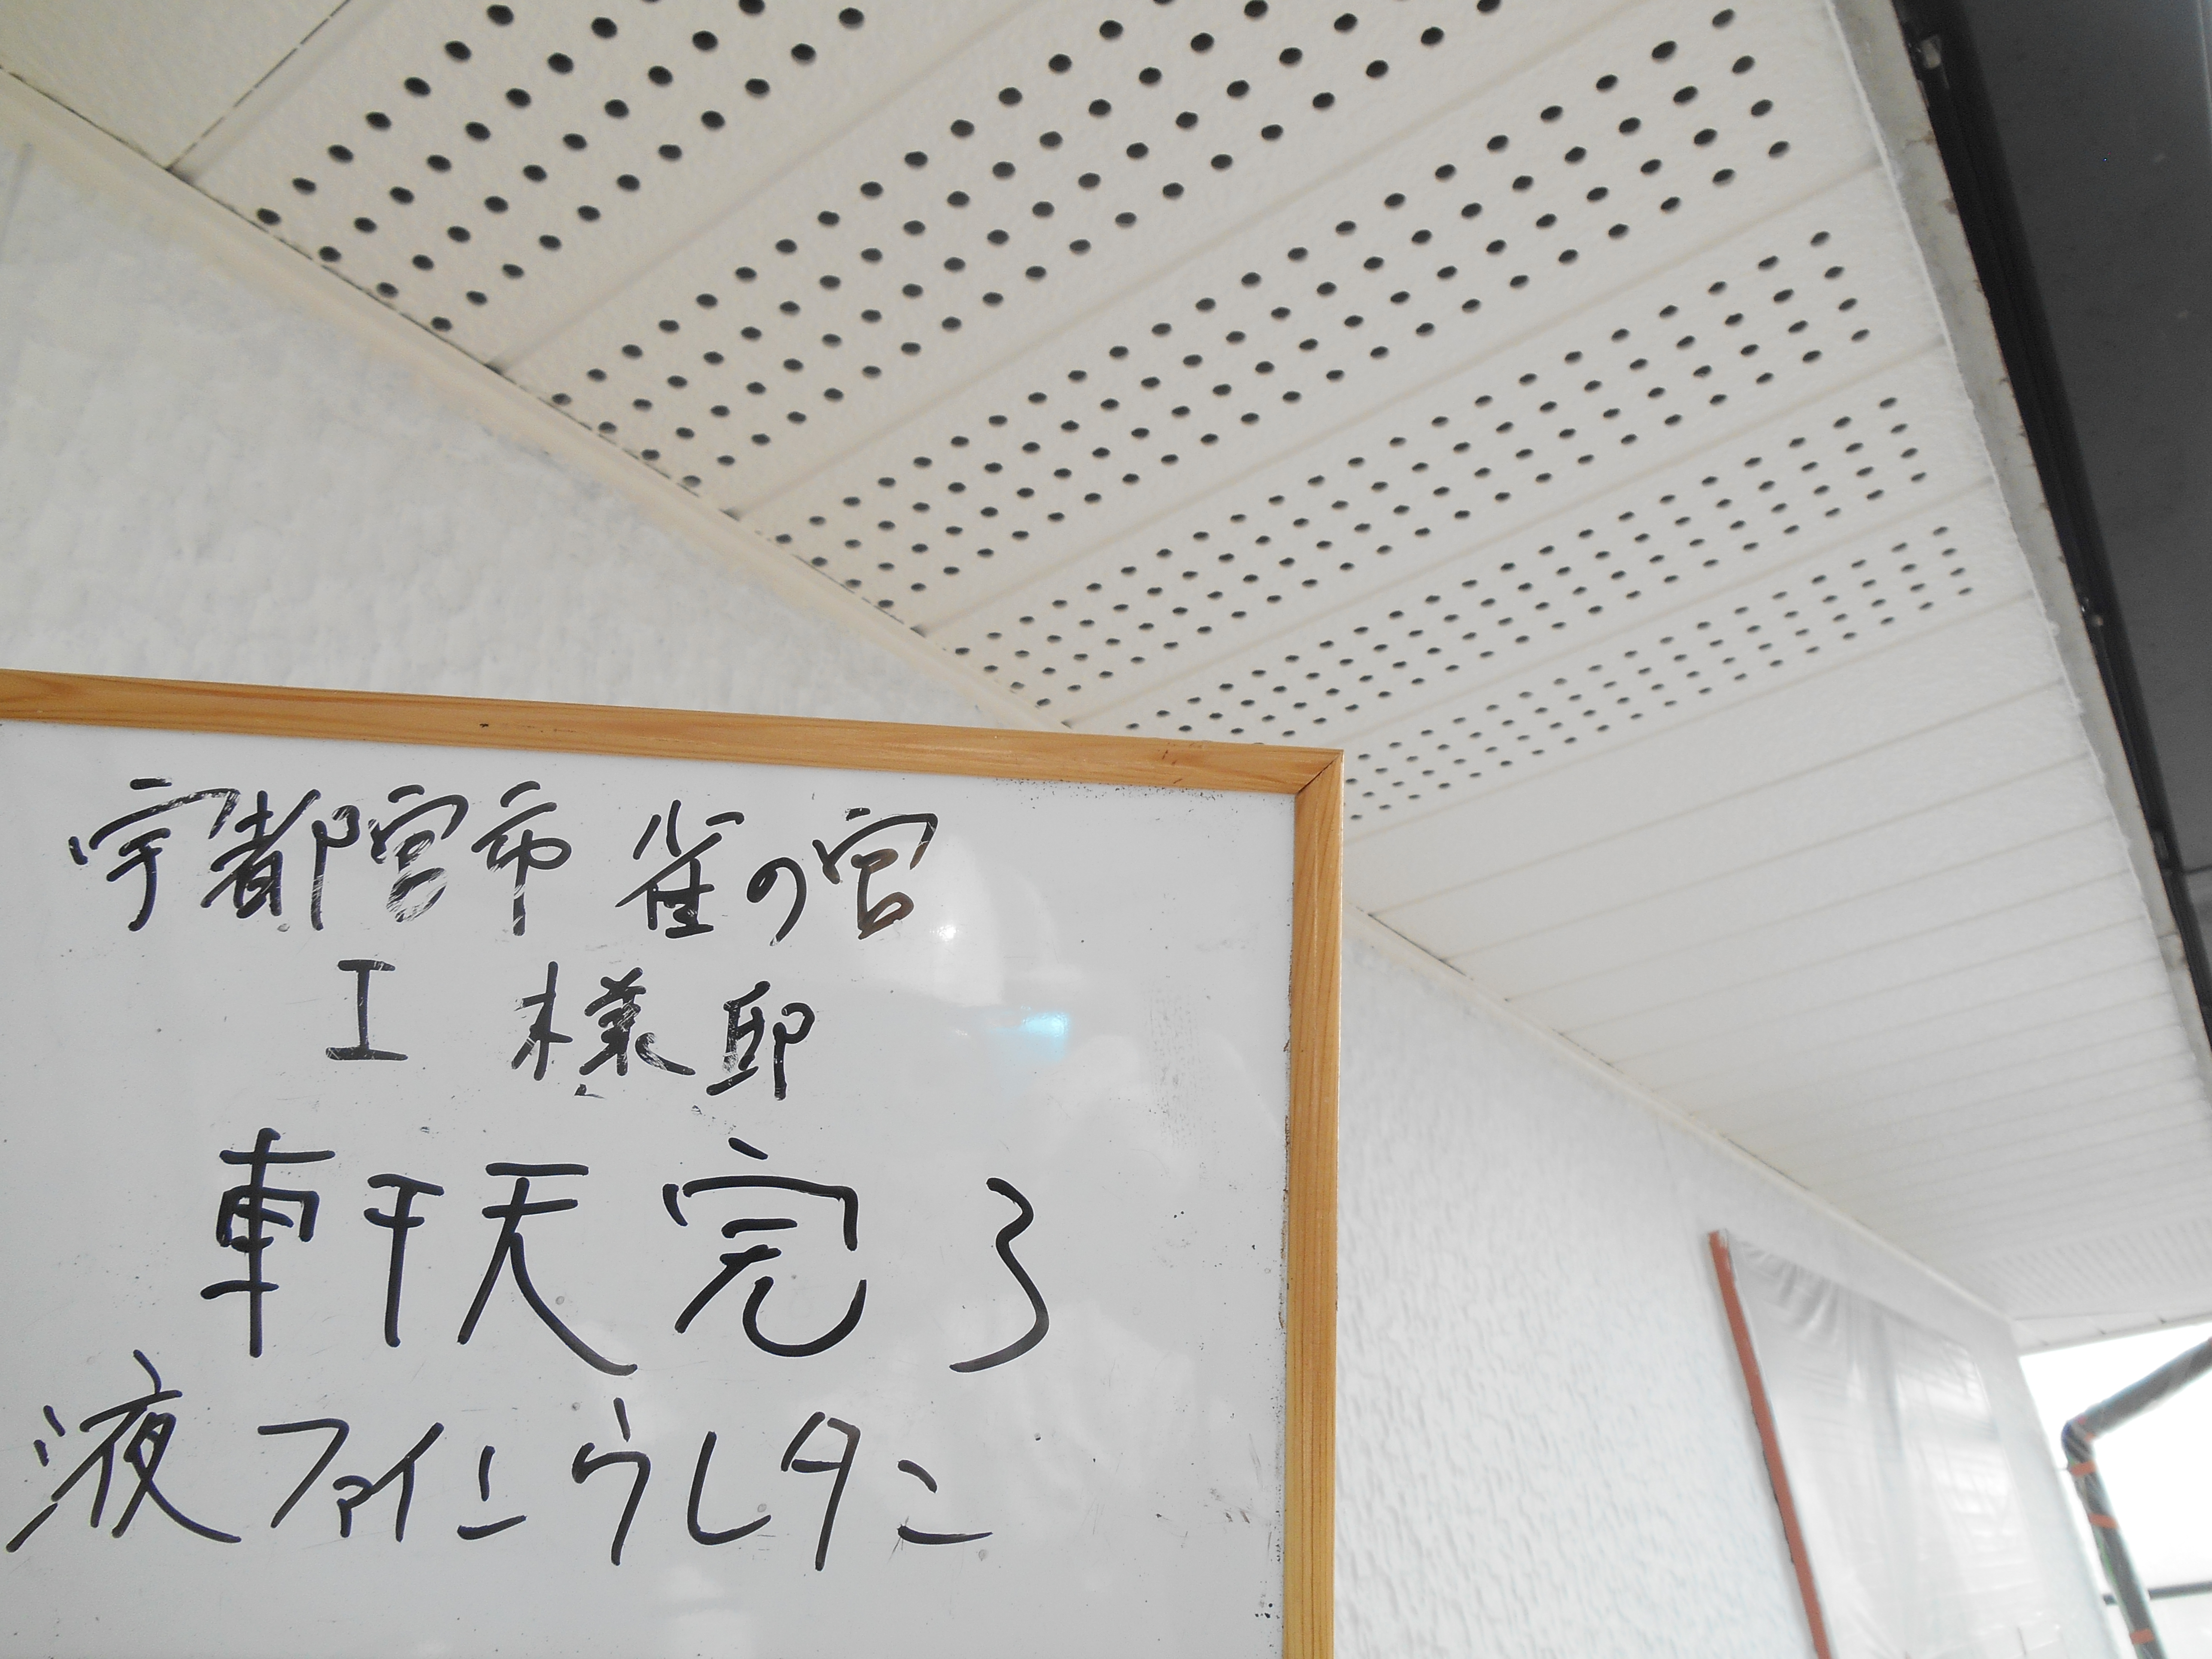 宇都宮市 雀の宮
I 様邸
軒天 完了
液ファインウレタン